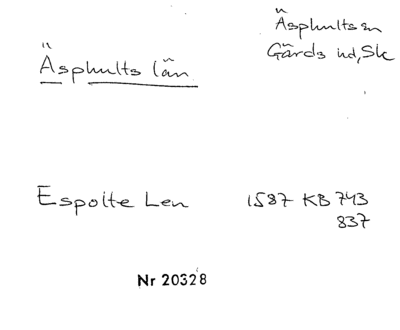 Äsphults sn
Gärds hd, Sk
Äsphults län
Espolte Len 1587 KB 743
837
Nr 20328